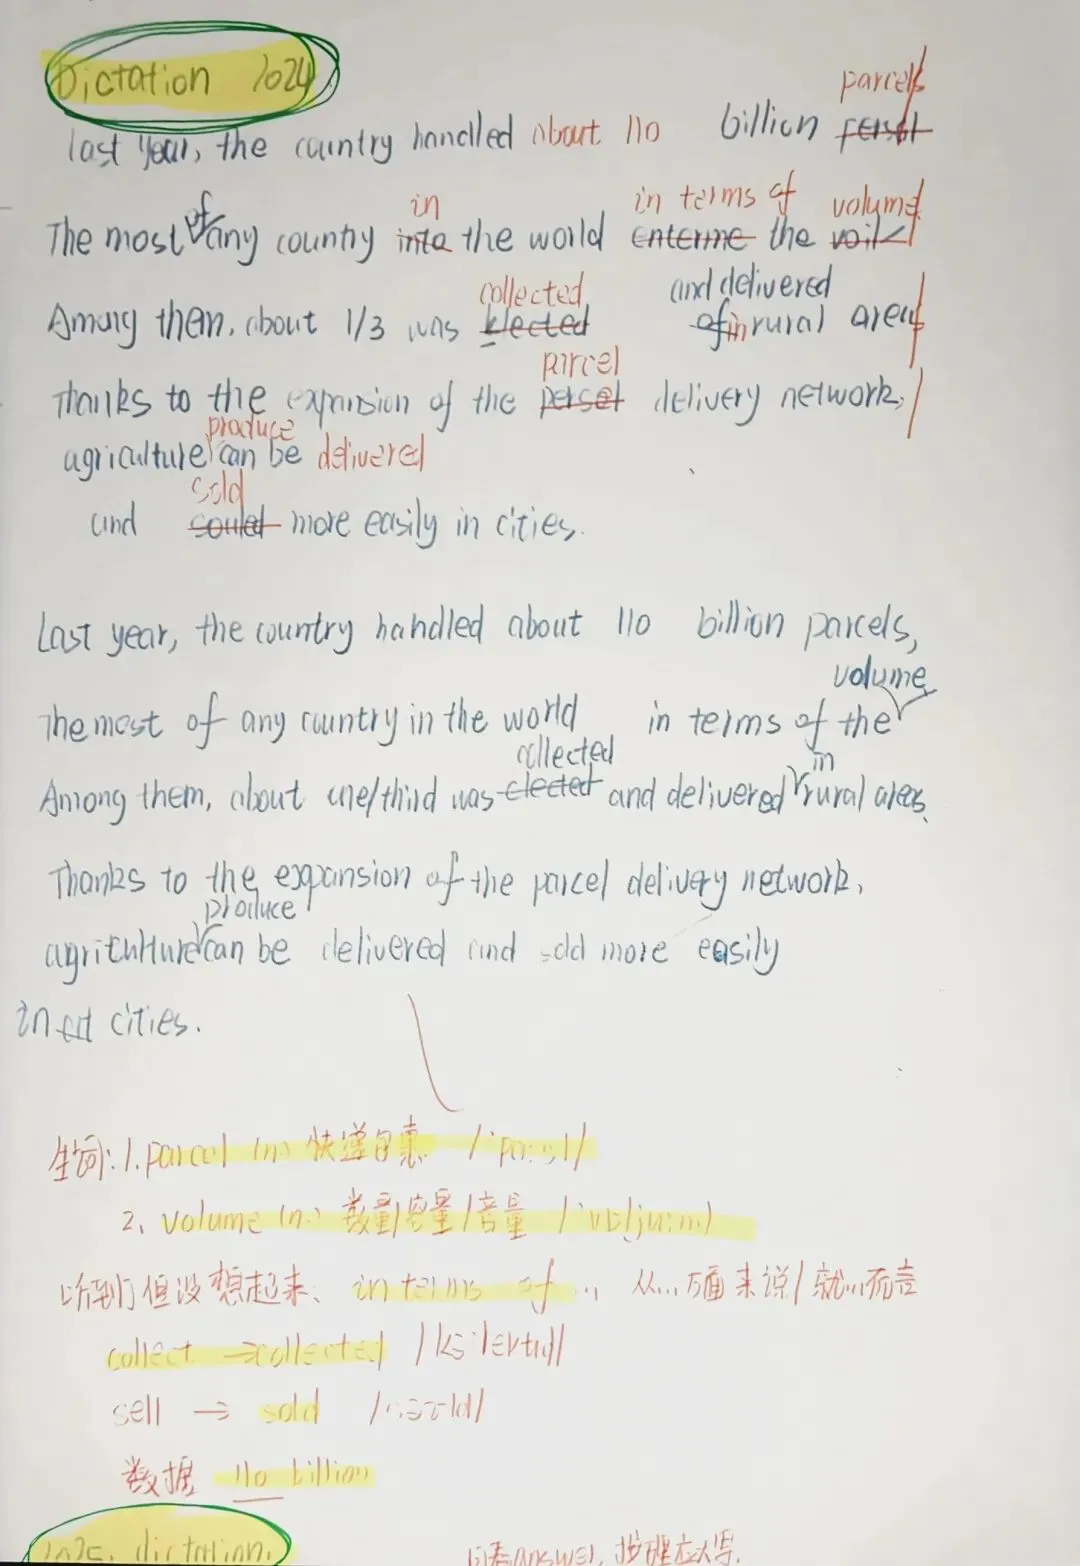 Dictation 1024
parcels
last year, the country handled about 110 billion persol
of in in terms of volume.
The most any country into the world enterme the voik
collected and delivered
Among them, about 1/3 was klected of in rural areas
parcel
Thanks to the expansion of the perset delivery network,
produce
agriculture can be delivered
sold
and souled more easily in cities.
Last year, the country handled about 110 billion parcels,
volume
The most of any country in the world in terms of the
collected in
Among them, about one/third was elected and delivered rural areas.
Thanks to the expansion of the parcel delivery network,
produce
agriculture can be delivered and sold more easily
in cities.
生词: 1. parcel (n.) 快递包裹
2、volume (n.) 数量/容量/音量
听到了但没想起来、in terms of ... 从...方面来说/就...而言
collect → collected
sell → sold
数据 110 billion
dictation.